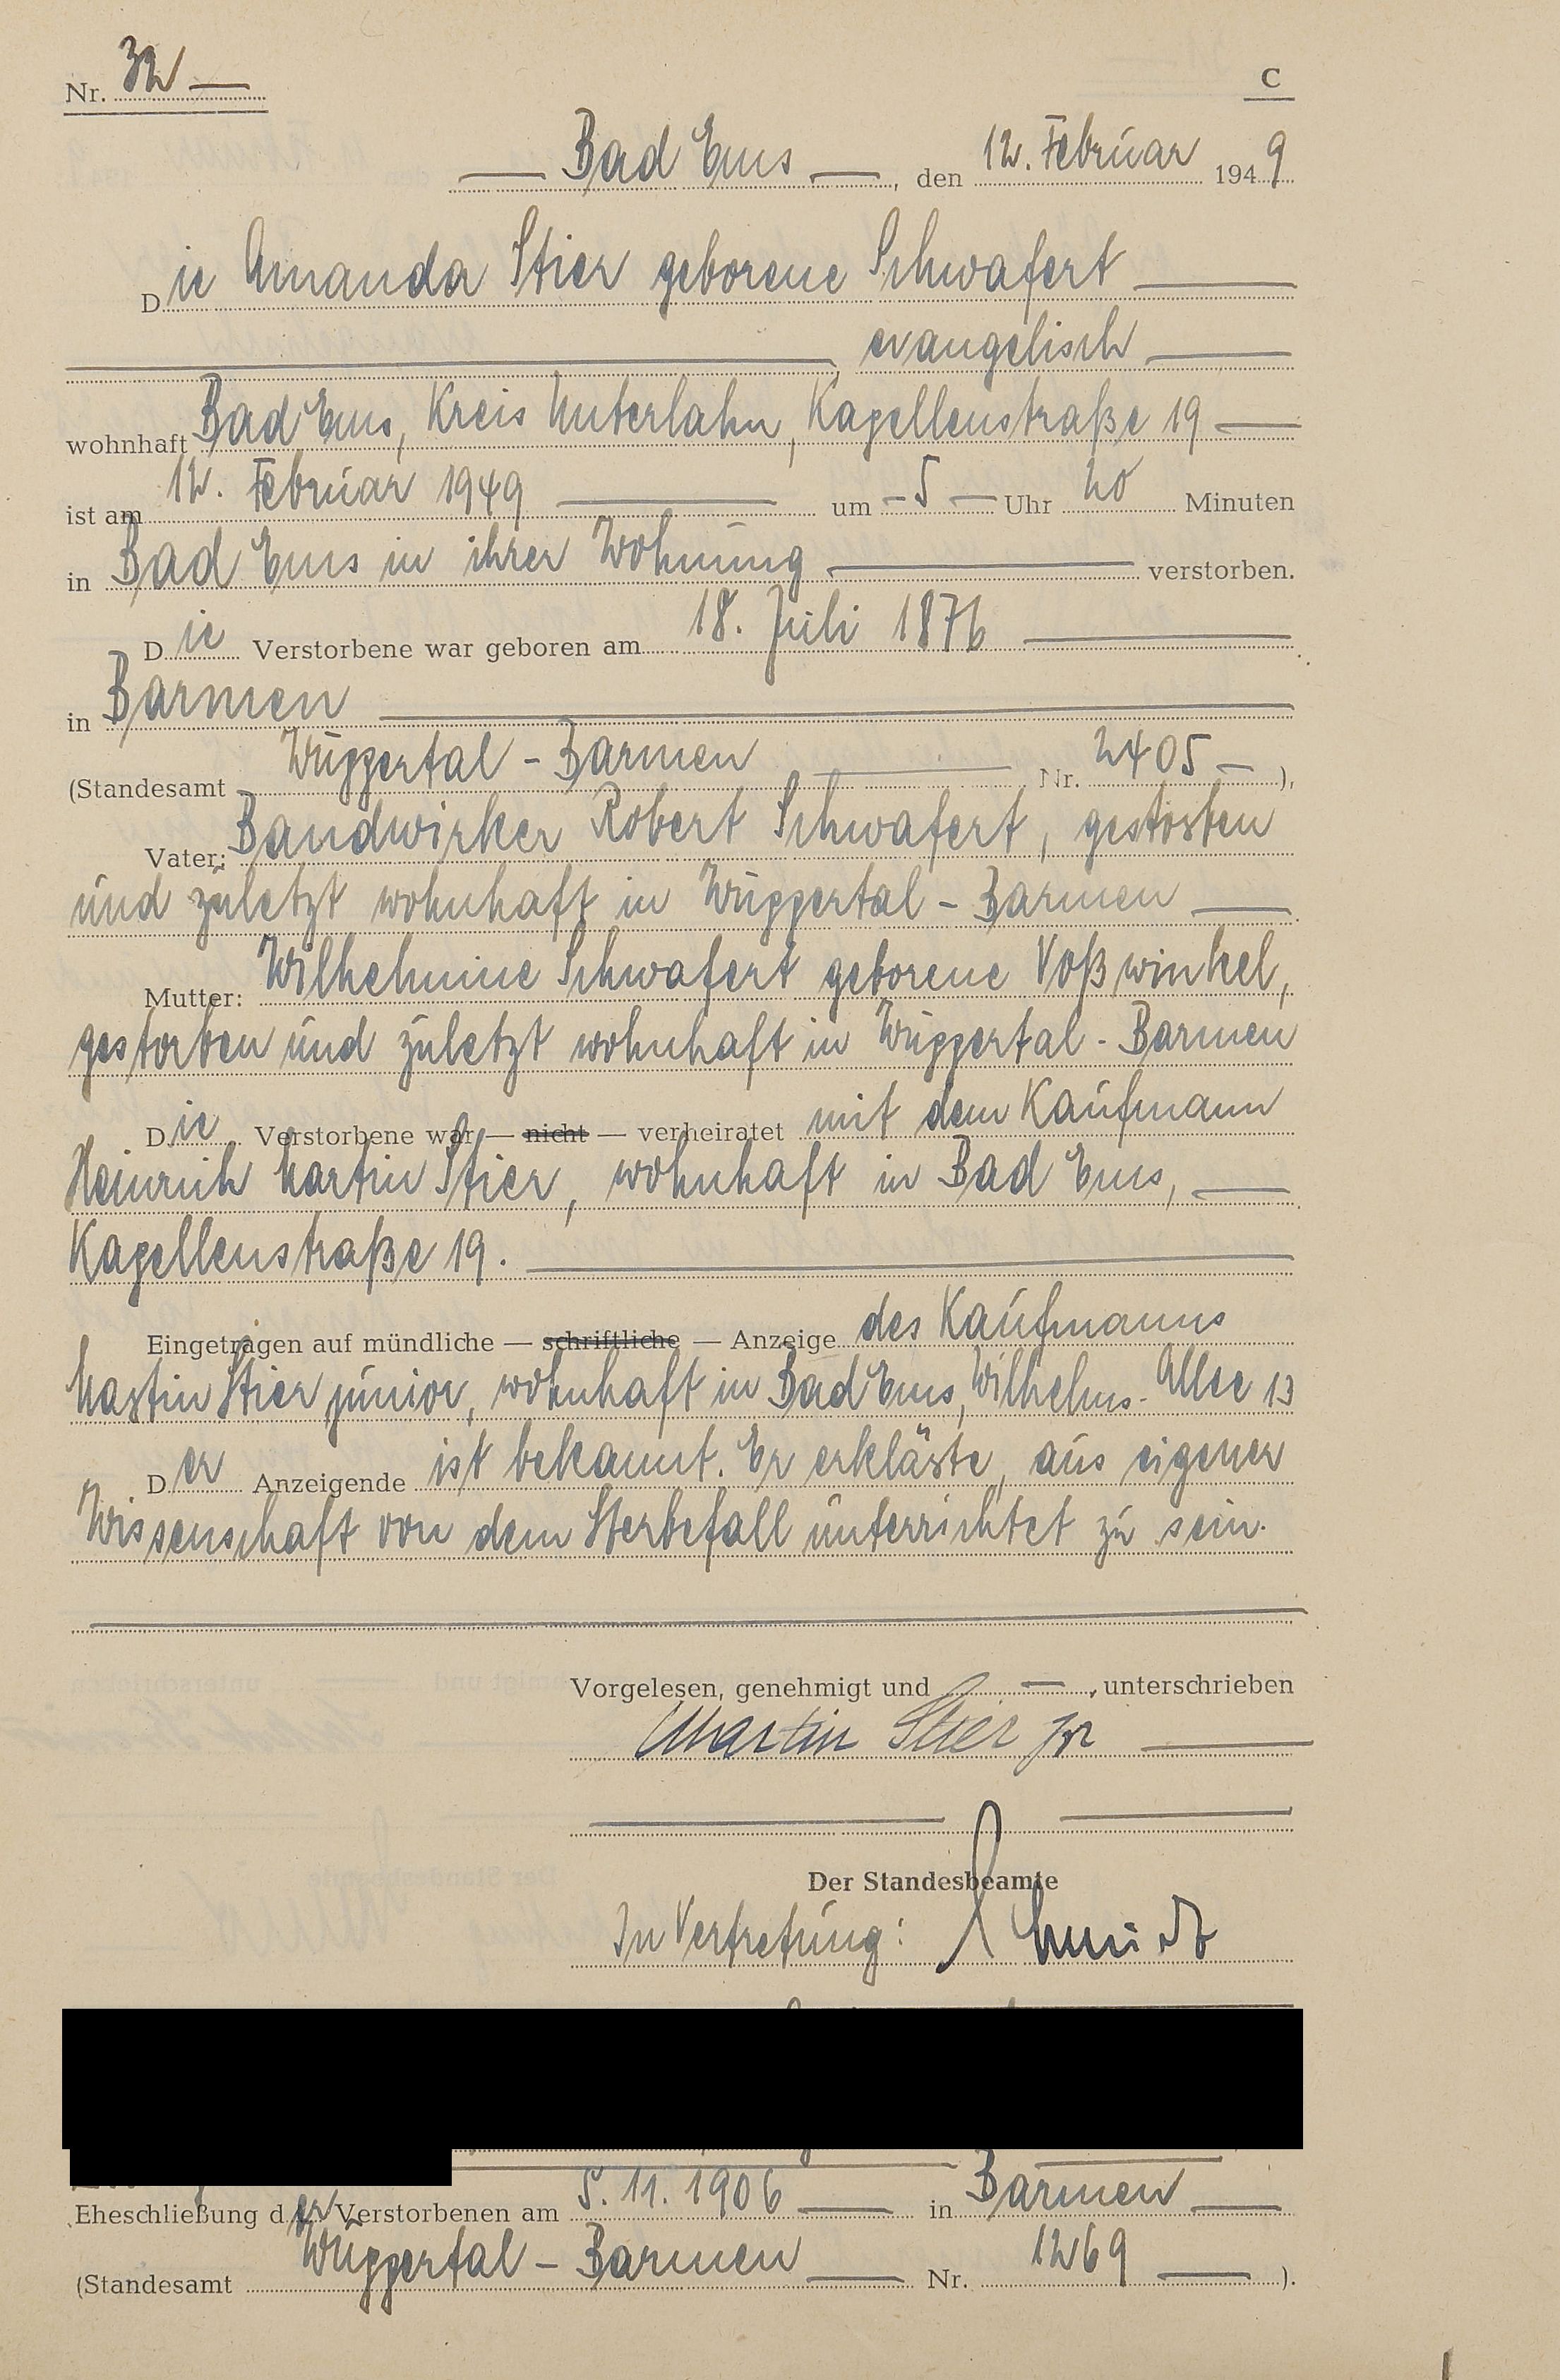 Nr. 32 —
C
— Bad Ems —, den 12. Februar 1949
Die Amanda Stier geborene Schwafert —
—, evangelisch —
wohnhaft Bad Ems, Kreis Unterlahn, Kapellenstraße 19 —
ist am 12. Februar 1949 — um - 5 — Uhr 20 Minuten
in Bad Ems in ihrer Wohnung — verstorben.
Die Verstorbene war geboren am 18. Juli 1876 —
in Barmen —
(Standesamt Wuppertal - Barmen — Nr. 2405 — ),
Vater: Bandwirker Robert Schwafert, gestorben
und zuletzt wohnhaft in Wuppertal - Barmen —
Mutter: Wilhelmine Schwafert geborene Voßwinkel,
gestorben und zuletzt wohnhaft in Wuppertal - Barmen
Die Verstorbene war — nicht — verheiratet mit dem Kaufmann
Heinrich Martin Stier, wohnhaft in Bad Ems, —
Kapellenstraße 19. —
Eingetragen auf mündliche — schriftliche — Anzeige des Kaufmanns
Martin Stier junior, wohnhaft in Bad Ems, Wilhelms-Allee 13
Der Anzeigende ist bekannt. Er erklärte, aus eigener
Wissenschaft von dem Sterbefall unterrichtet zu sein.
Vorgelesen, genehmigt und —, unterschrieben
Martin Stier jr —
Der Standesbeamte
In Vertretung: Schmidt
Eheschließung der Verstorbenen am 5. 11. 1906 — in Barmen —
(Standesamt Wuppertal - Barmen — Nr. 1269 — ).